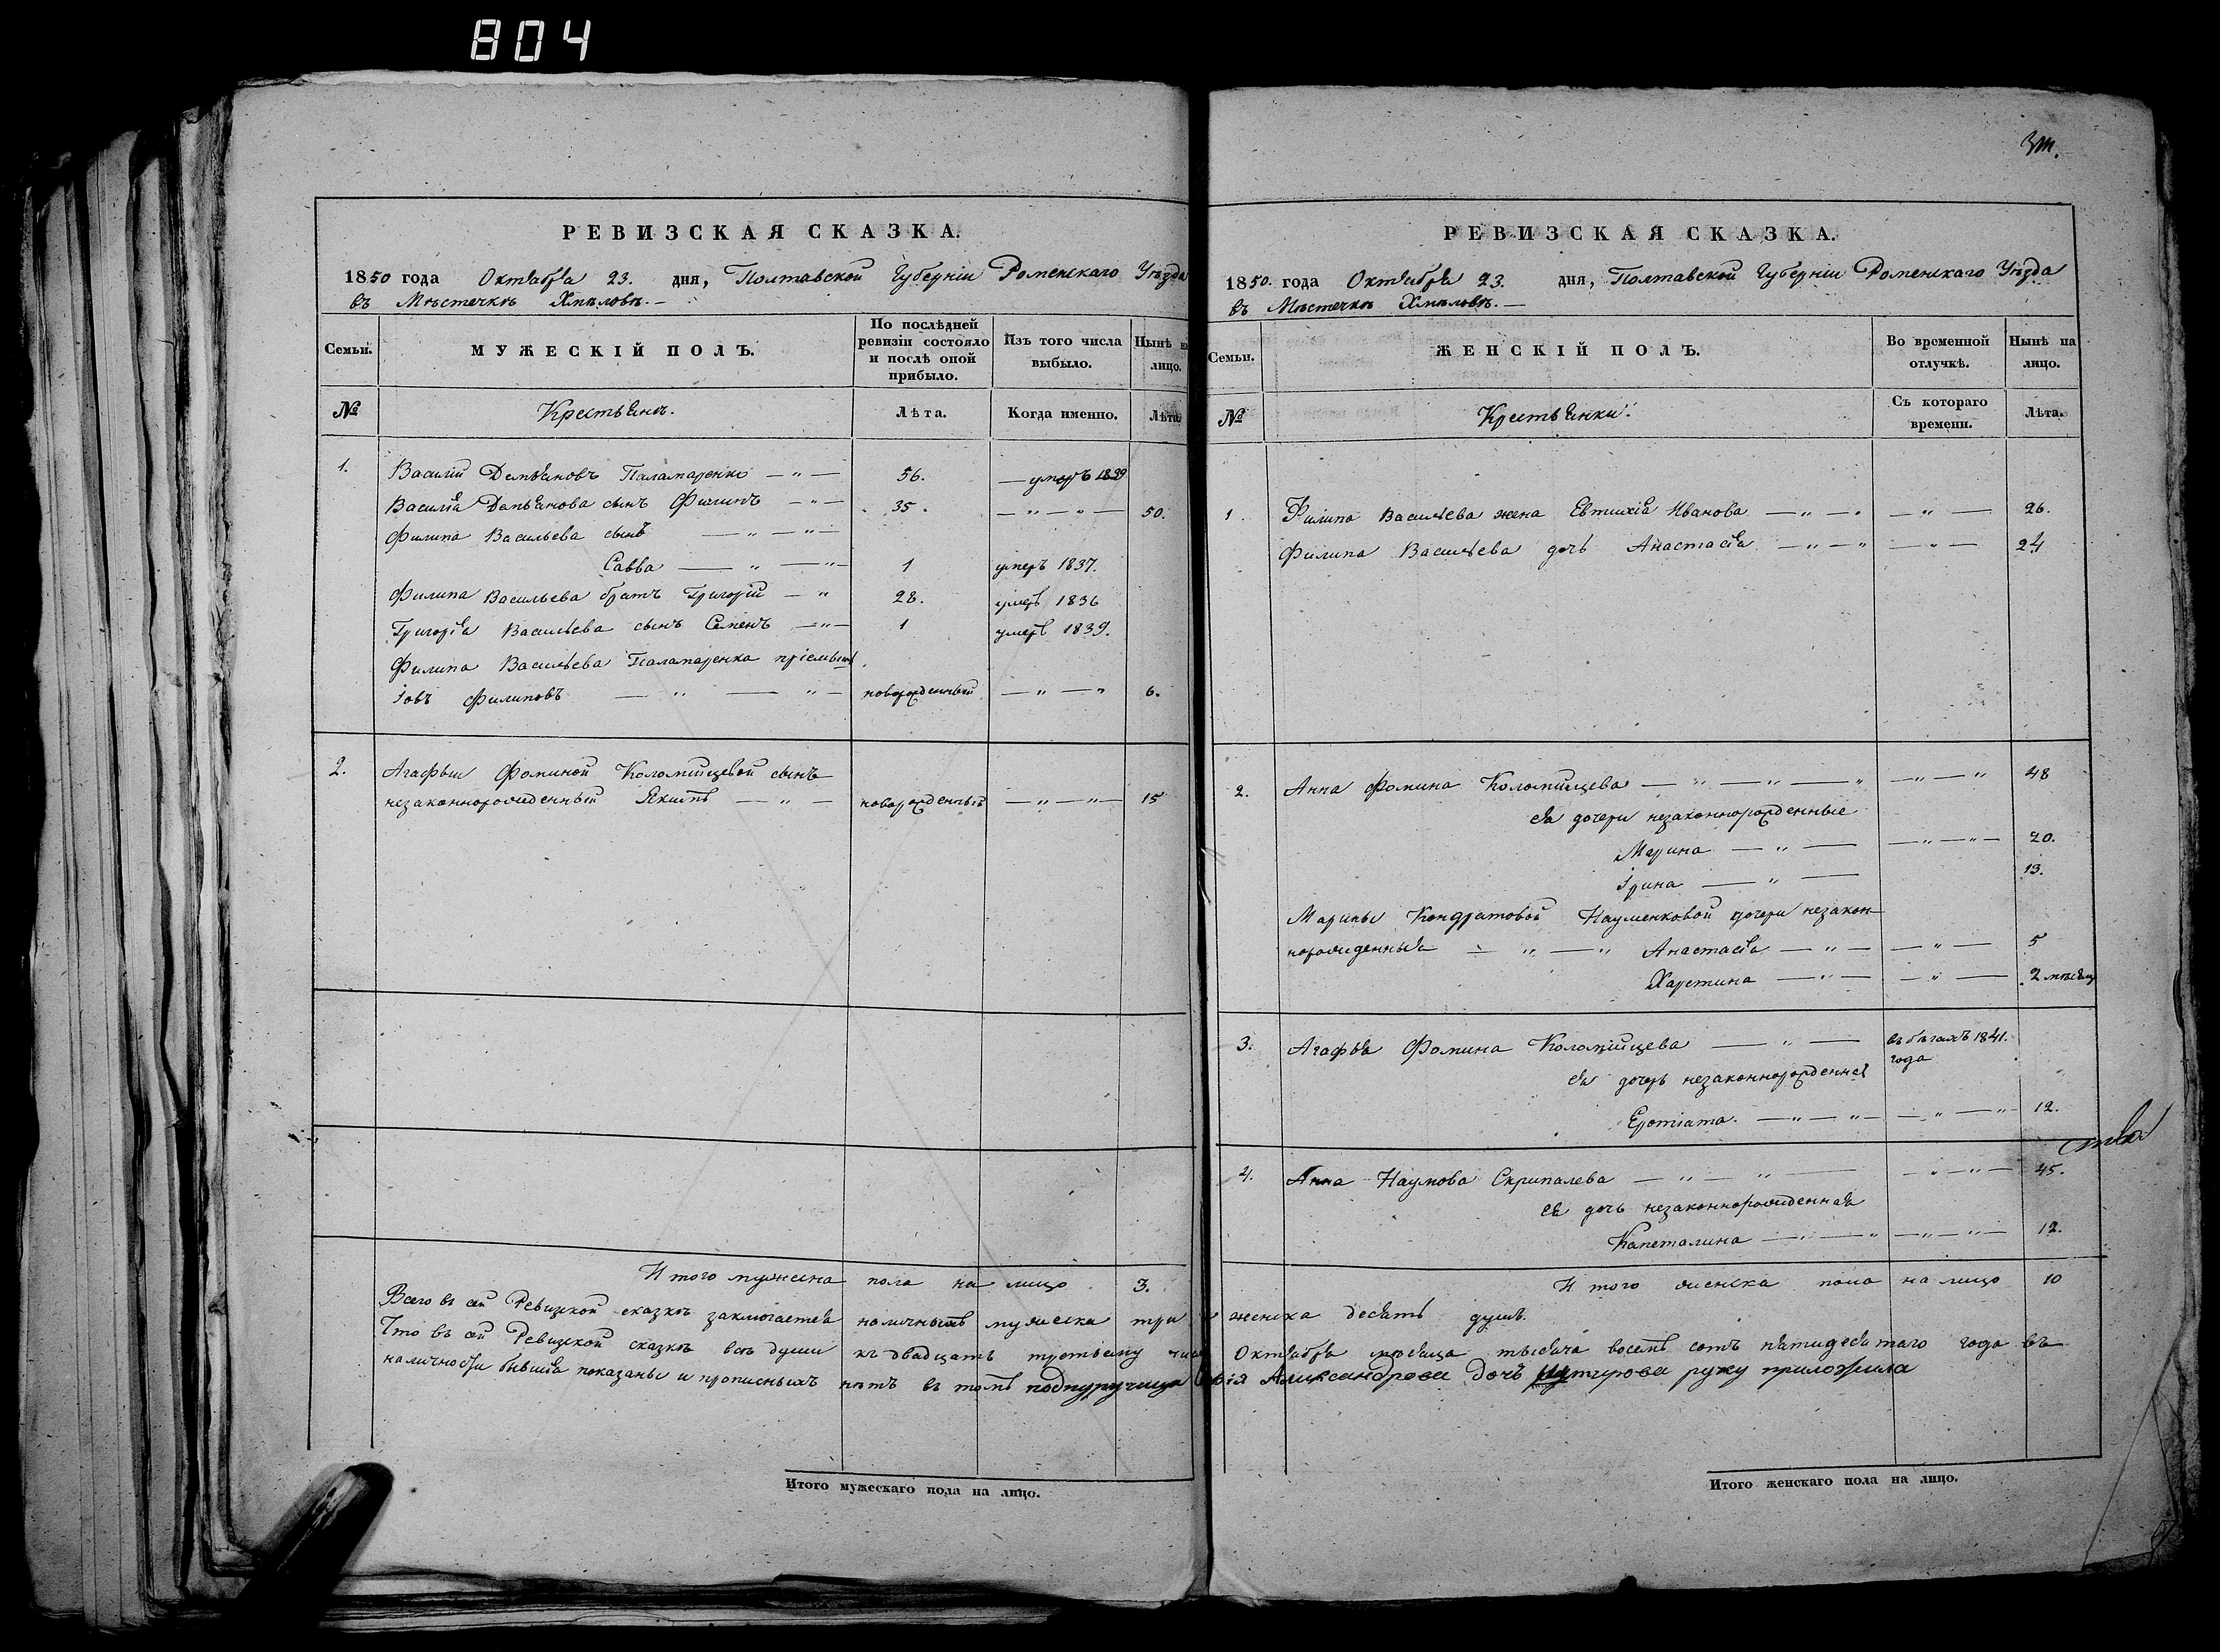 804
РЕВИЗСКАЯ СКАЗКА.
1850 года Октября 23. дня, Полтавской Губерніи Роменскаго Уѣзда
въ Мѣстечкѣ Хмѣловѣ.—
Семьи.
МУЖЕСКІЙ ПОЛЪ.
По послѣдней ревизіи состояло и послѣ оной прибыло.
Изъ того числа выбыло.
Нынѣ на лицо.
№
Крестьянъ.
Лѣта.
Когда именно.
Лѣта.
1. Василій Демьяновъ Паламаренко — " — 56. — умеръ 1839
Василія Демьянова сынъ Филипъ — " — 35. — " — " — 50.
Филипа Васильева сынъ — " — " —
Савва — " — " — 1 умеръ 1837.
Филипа Васильева братъ Григорій — " 28. умеръ 1836
Григорія Васильева сынъ Семенъ — " — 1 умеръ 1839.
Филипа Васильева Паламаренка пріемышъ
Іовъ Филиповъ — " — " — новорожденный — " — " 6.
2. Агафьи Фоминой Коломійцевой сынъ
незаконнорожденный Якимъ — " — новорожденный — " — " — 15
Итого мужеска пола на лицо 3.
Всего въ сей Ревизкой сказкѣ заключается наличныхъ мужеска три
Что въ сей Ревизкой сказкѣ всѣ души къ двадцать третьему
наличности бывшія показаны и прописныхъ нѣтъ въ томъ подпуручица
Итого мужескаго пола на лицо.
РЕВИЗСКАЯ СКАЗКА.
1850. года Октября 23. дня, Полтавской Губерніи Роменскаго Уѣзда
въ Мѣстечкѣ Хмѣловѣ.—
Семьи.
ЖЕНСКІЙ ПОЛЪ.
Во временной отлучкѣ.
Нынѣ на лицо.
№
Крестьянки.
Съ котораго времени.
Лѣта.
1. Филипа Васильева жена Евтихія Иванова — " — " — " — 26.
Филипа Васильева дочь Анастасія — " — " — " — 24
2. Анна Фомина Коломійцева — " — " — " — " — " 48
ея дочери незаконнорожденные
Марина — " — — " — " — 20.
Ірина — " — 13.
Марины Кондратовой Науменковой дочери незакон-
норожденныя — " — " Анастасія — " — — " — 5
Харетина — " — — " — 2 мѣсяц
3. Агафья Фомина Коломійцева — " — въ бѣгахъ 1841. года
ея дочерь незаконнорожденная
— " — " — — " — " — 12.
4. Анна Наумова Скрипалева — " — " — — " — " — 45.
ея дочь незаконнорожденная
Капеталина — " — " — " — " — 12.
Итого женска пола на лицо 10
женска десять душъ.
Октября мѣсяца тысяча восемъ сотъ пятидесятаго года въ
Александрова дочъ ружу приложила
Итого женскаго пола на лицо.